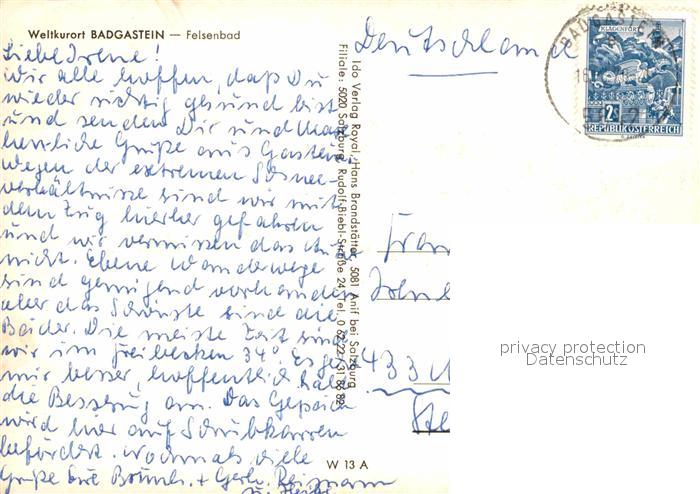 Weltkurort BADGASTEIN — Felsenbad
Liebe Irene!
Wir alle hoffen, daß Du
wieder richtig gesund bist
und senden Dir und
herzliche Grüße aus Gastein
Wegen der extremen Schnee-
verhältnisse sind wir mit
dem Zug hierher gefahren
und wir vermissen das Auto
nicht. Ebene Wanderwege
sind genügend vorhanden
aber das Schönste sind die
Bäder. Die meiste Zeit sind
wir im Freibecken 34°. Es geht
mir besser, hoffentlich hält
die Besserung an. Das Gepäck
wird hier auf Schubkarren
befördert. Nochmals viele
Grüße Eure + Gerh. Reimann
u. Heike
Ido Verlag Royal, Hans Brandstätter, 5081 Anif bei Salzburg
Filiale: 5020 Salzburg, Rudolf-Biebl-Straße 24, Tel. 0 62 22 / 31 86 82
W 13 A
Deutschland
BADGASTEIN
KLAGENFURT
2S
REPUBLIK ÖSTERREICH
Frau
Irene
433
privacy protection
Datenschutz